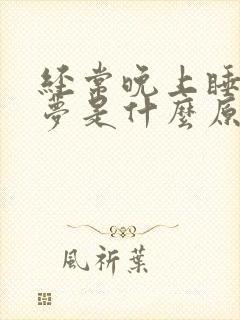 經常晚上睡
夢是什麼原
風祈葉